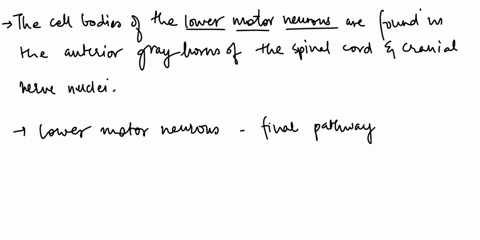 → The cell bodies of the lower motor neurons are found in
the anterior gray horns of the spinal cord & cranial
nerve nuclei.
→ lower motor neurons - final pathway